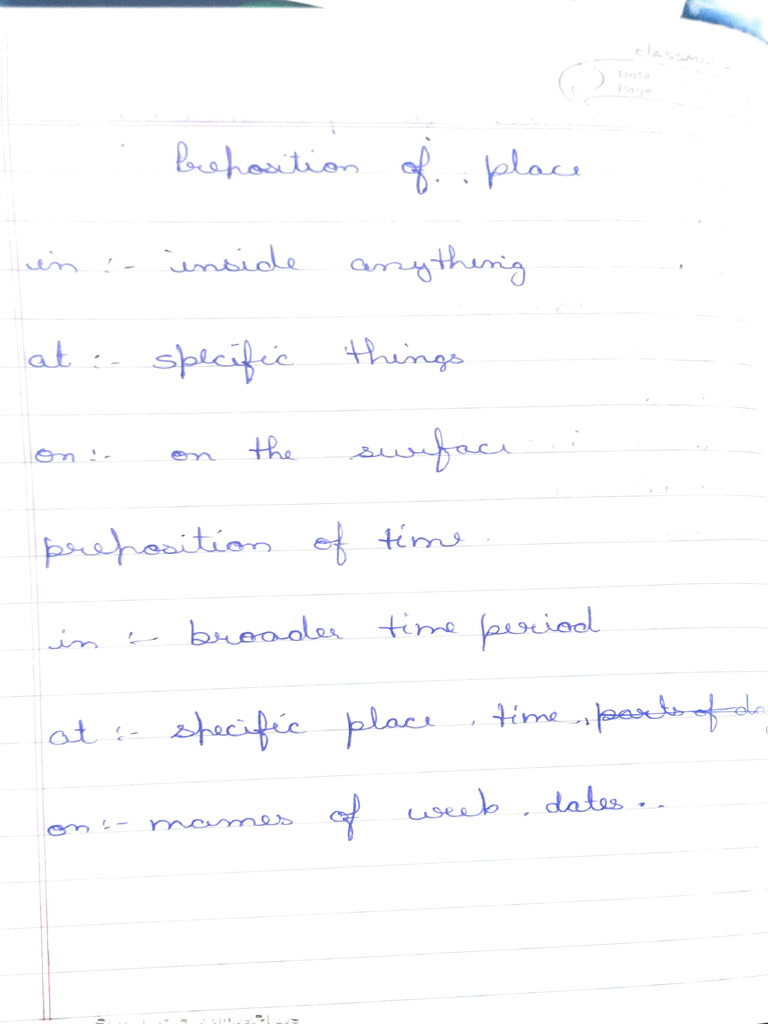 classmate
Date
Page
Preposition of place
in :- inside anything
at :- specific things
on :- on the surface
preposition of time
in :- broader time period
at :- specific place, time, parts of da
on :- names of week, dates..